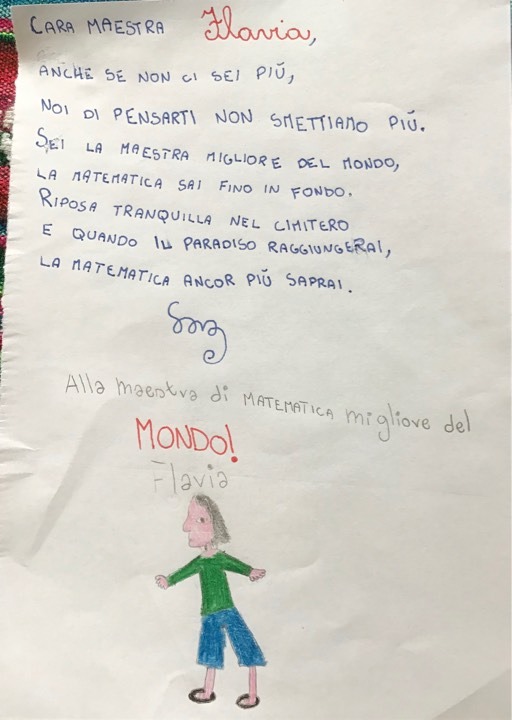 CARA MAESTRA Flavia,
ANCHE SE NON CI SEI PIÚ,
NOI DI PENSARTI NON SMETTIAMO PIÚ.
SEI LA MAESTRA MIGLIORE DEL MONDO,
LA MATEMATICA SAI FINO IN FONDO.
RIPOSA TRANQUILLA NEL CIMITERO
E QUANDO IL PARADISO RAGGIUNGERAI,
LA MATEMATICA ANCOR PIÚ SAPRAI.
Alla maestra di MATEMATICA migliore del
MONDO!
Flavia